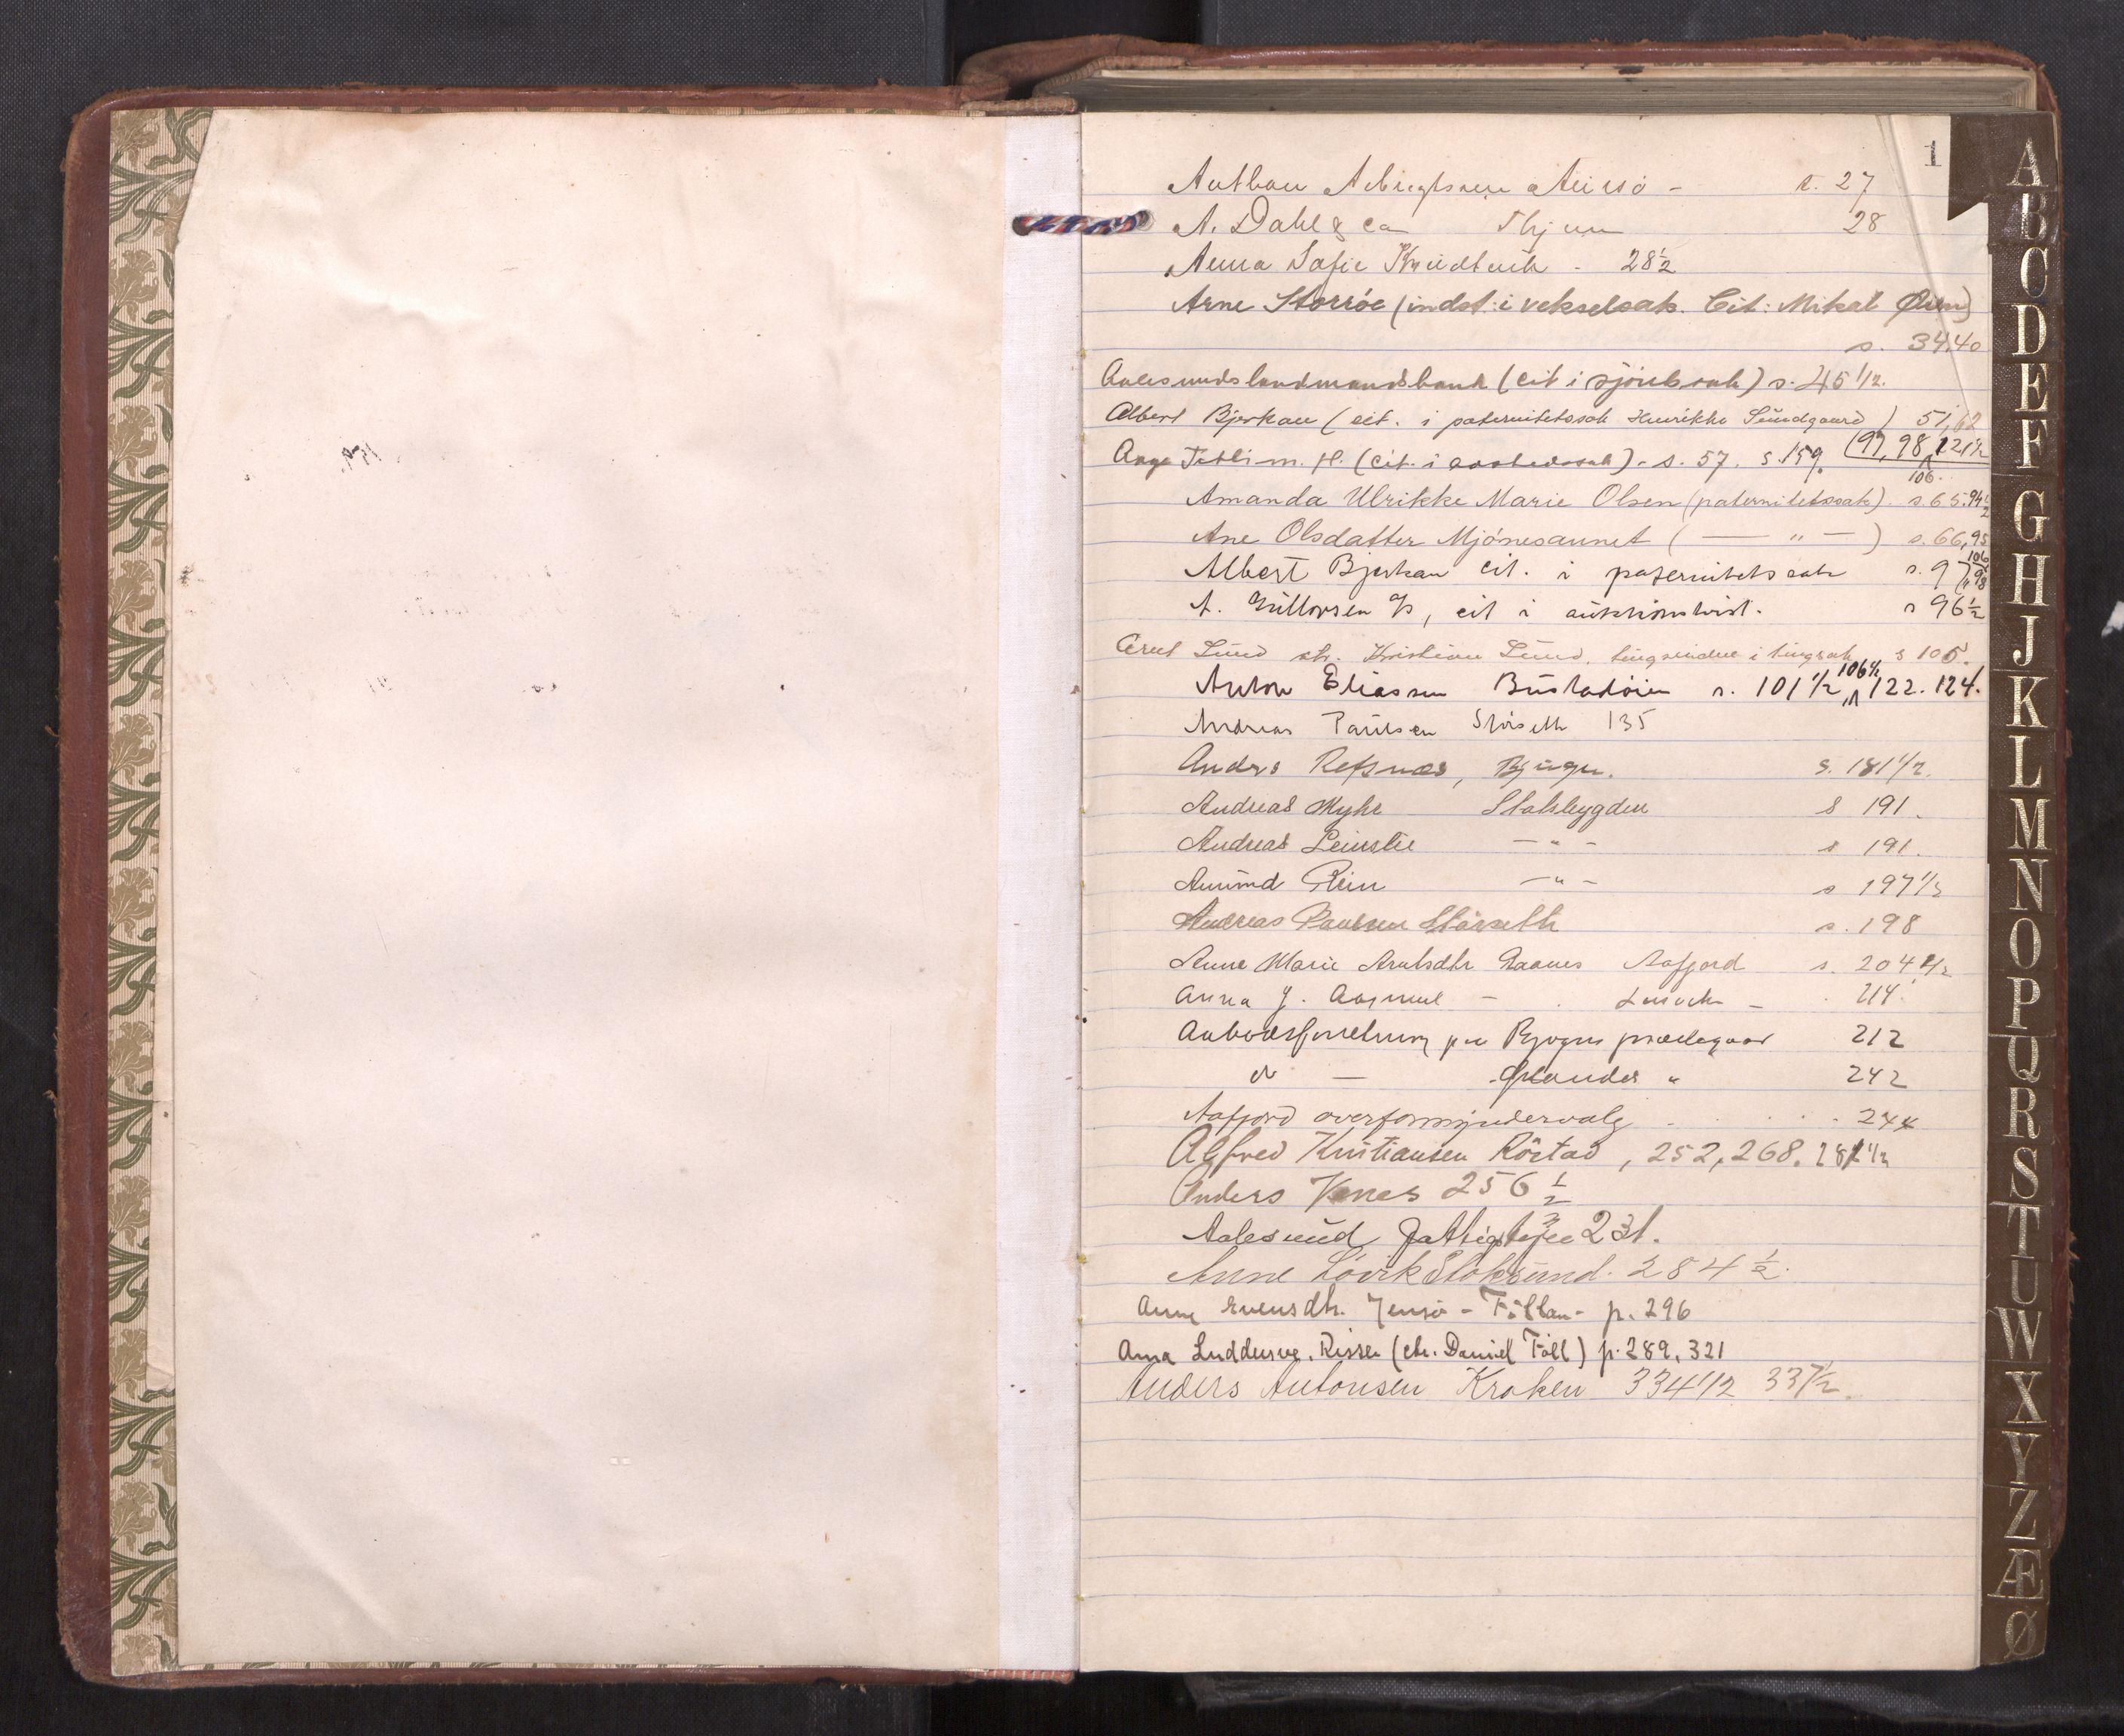 1
s. 27
A. Dahl & Co 28
Anna Sofie 28½
Arne Storröe (indst. i vekselsak. Cit: Mikal Øien)
s. 34,40
Aalesunds landmandsbank (cit i sjöretssak) s. 45 1/2.
Albert Bjerkan (cit. i paternitetssak Henrikke Sundgaard) 51,62
m. fl. (cit. i s. 57. s. 159. (97, 98, 121½
106.
Amanda Ulrikke Marie Olsen (paternitetssak) s. 65. 94½
Ane Olsdatter Mjönesaunet ( — " — ) s. 66, 95
Albert Bjerkan cit. i paternitetssak s. 97, 98 106
A. Guttorsen cit i auktionstvist. s 96½
Arnt Lund str. Kristian Lund, tingvidne i tingsak s 105.
Anton Eliassen Bustadöien s. 101 1/2 106½ 122. 124.
Andreas Paulsen Störseth 135
Anders Refsnæs, Bjugn. s. 181 1/2.
Andreas Myhr Stadsbygden s 191.
Andreas Leinslie - " - s 191.
Amund Rein - " - s 197 1/2
Andreas Paulsen Störseth s. 198
Anne Marie Arntsdtr Raanes Aafjord s. 204 1/2
Anna J. Lensvik - 214.
Aabodsforretning paa Bjugn prestegaar 212
do — Ørlandet " 242
Aafjord overformyndervalg 244
Alfred Kristiansen Röstad, 252, 268. 281 1/2
Anders Venes 256 ½
Aalesund fattigstyre 231.
Anne Lövik Stoksund. 284 ½.
Anne Evensdtr. Jensö - Fillan - p. 296
Anna Luddesve. Rissen (ctr. Daniel Föll) p. 289, 321
Anders Antonsen Kroken 334 1/2 337½
A
B
C
D
E
F
G
H
J
K
L
M
N
O
P
Q
R
S
T
U
W
X
Y
Z
Æ
Ø